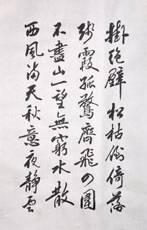 掛絕壁松枯倒倚落
殘霞孤鶩齊飛四圍
不盡山一望無窮水散
西風滿天秋意夜靜雲